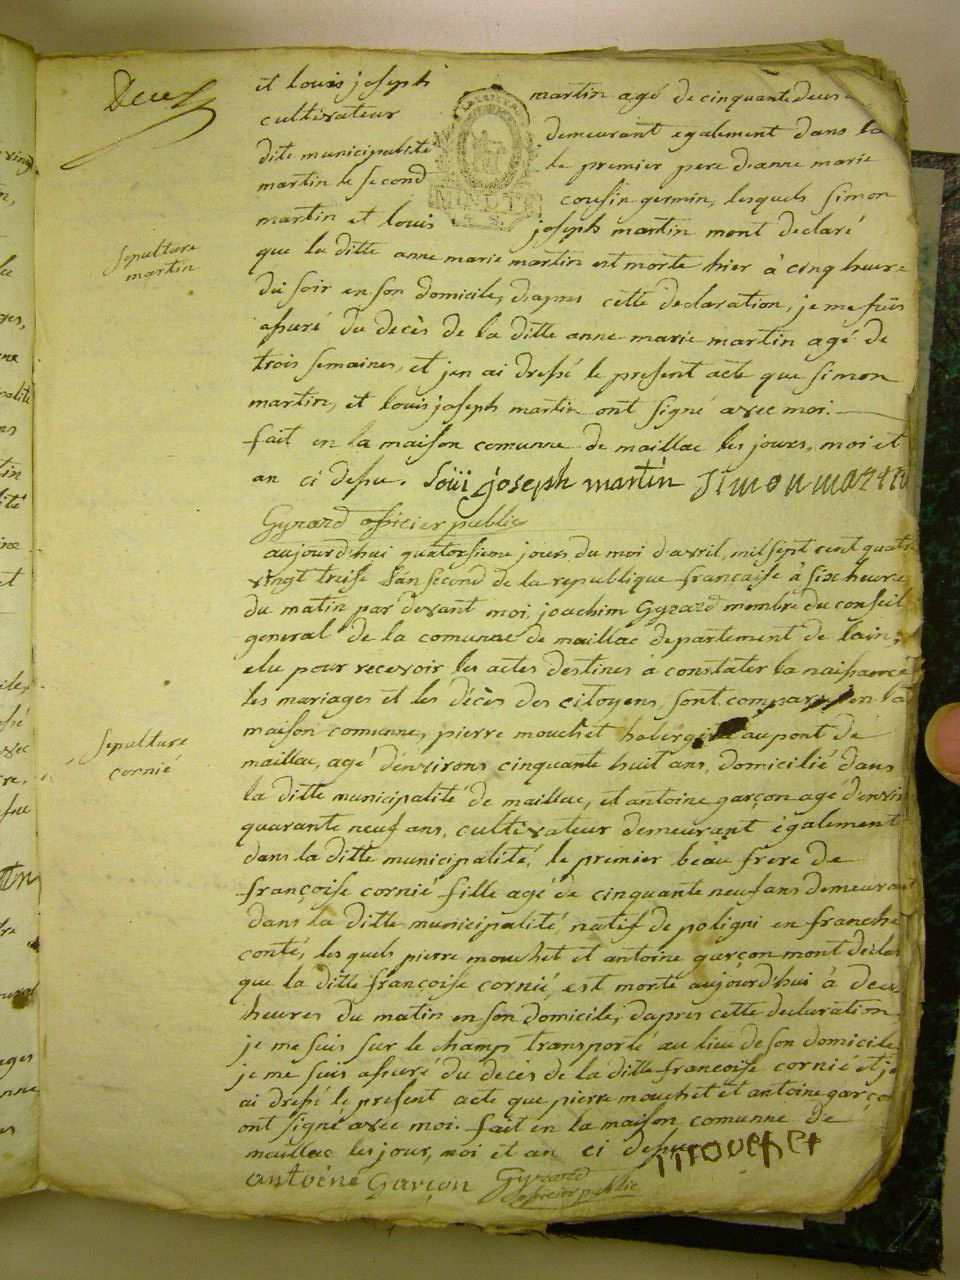 Deux
et louis joseph martin agé de cinquante deux
cultivateur demeurant egalement dans la
dite municipalité le premier pere danne marie
martin le second cousin germin, lesquels simon
martin et louis joseph martin mont declaré
que la ditte anne marie martin est morte hier à cinq heure
du soir en son domicile, dapres cette declaration, je me suis
assuré du decès de la ditte anne marie martin agé de
trois semaines, et jen ai dressé le present acte que simon
martin, et louis joseph martin ont signé avec moi.
fait en la maison comunne de maillac les jours, moi et
an ci dessu. Loüi joseph martin Simon martin
Gyrard officier public
Sepulture
martin
aujourdhui quatorsieme jours du moi davril, mil sept cent quatre
vingt treise lan second de la republique françaisse à six heure
du matin par devant moi, joachim Gyrard membre du conseil
general de la comunne de maillac departement de lain,
elu pour recevoir les actes destines à constater la naissance
les mariages et les décès des citoyens, sont comparu en la
maison comunne, pierre mouchet au pont de
maillac, agé denvirons cinquante huit ans, domicilié dans
la ditte municipalité de maillac, et antoine garçon agé denviron
quarante neuf ans, cultivateur demeurant également
dans la ditte municipalité, le premier beau frere de
françoisse cornié fille agé de cinquante neuf ans demeurant
dans la ditte municipalité, natif de poligni en franche
conté, les quels pierre mouchet et antoine garçon mont declare
que la ditte françoisse cornié, est morte aujourdhui à deux
heures du matin en son domicile, dapres cette declaration
je me suis sur le champs transporté au lieu de son domicile
je me suis assuré du decès de la ditte francoisse cornié et je
ai dressé le present acte que pierre mouchet et antoine garçon
ont signé avec moi. fait en la maison comunne de
maillac les jour, moi et an ci dessu mouchet
antoine Garçon Gyrard
officier public
Sepulture
cornié